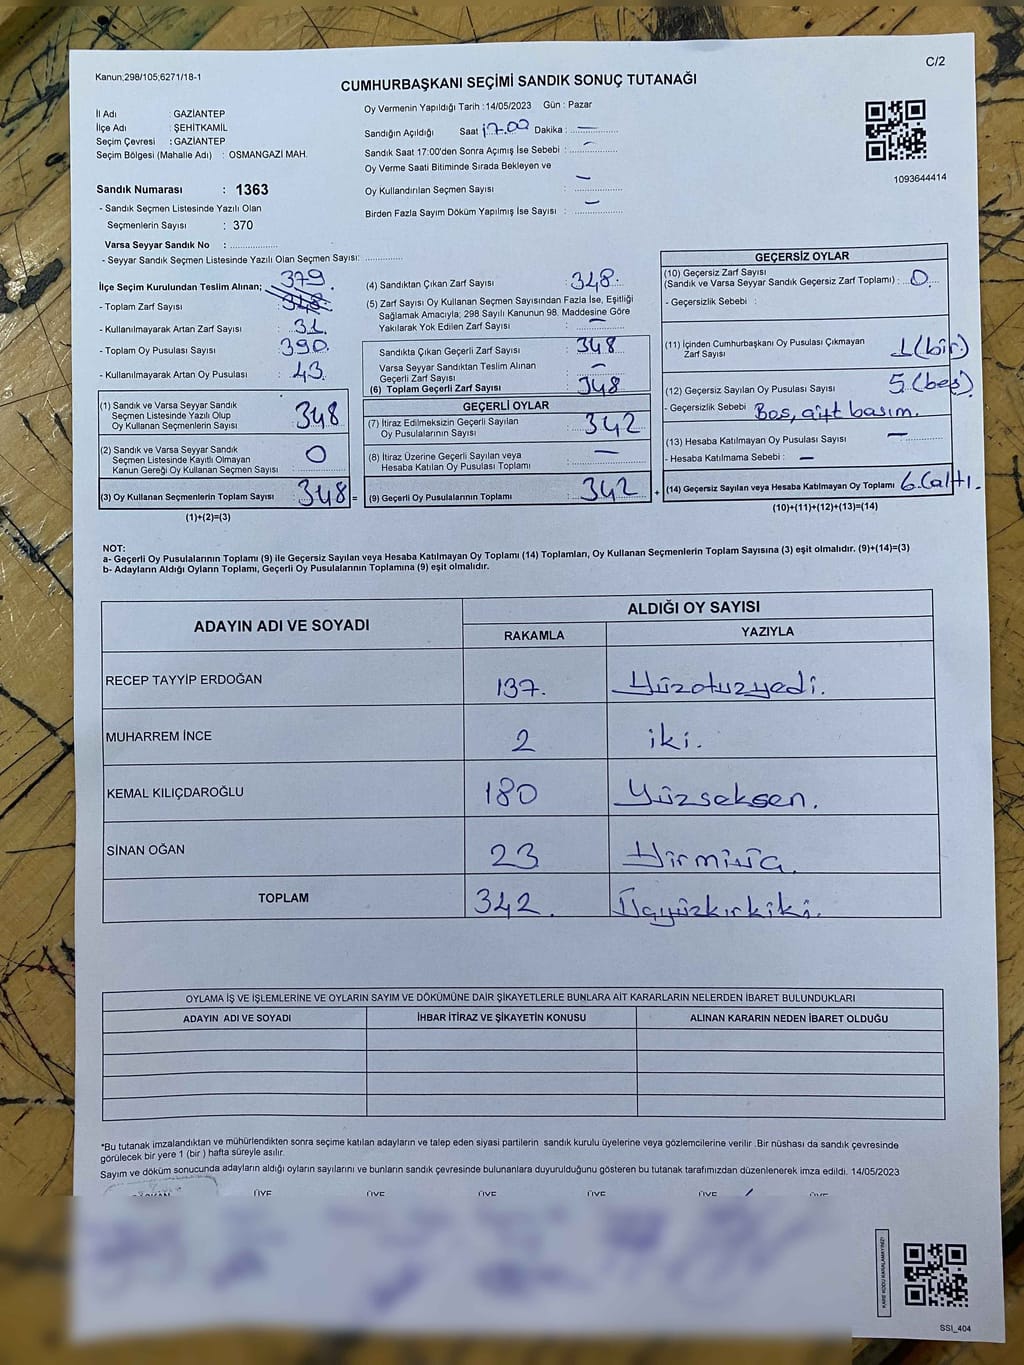 Kanun;298/105;6271/18-1
C/2
CUMHURBAŞKANI SEÇİMİ SANDIK SONUÇ TUTANAĞI
İl Adı : GAZİANTEP
İlçe Adı : ŞEHİTKAMİL
Seçim Çevresi : GAZİANTEP
Seçim Bölgesi (Mahalle Adı) : OSMANGAZİ MAH.
Sandık Numarası : 1363
- Sandık Seçmen Listesinde Yazılı Olan
Seçmenlerin Sayısı : 370
Varsa Seyyar Sandık No : ..................
- Seyyar Sandık Seçmen Listesinde Yazılı Olan Seçmen Sayısı: ..............
Oy Vermenin Yapıldığı Tarih :14/05/2023 Gün : Pazar
Sandığın Açıldığı Saat 17.00 Dakika : —
Sandık Saat 17:00'den Sonra Açımış İse Sebebi : —
Oy Verme Saati Bitiminde Sırada Bekleyen ve
Oy Kullandırılan Seçmen Sayısı : —
Birden Fazla Sayım Döküm Yapılmış İse Sayısı : —
1093644414
İlçe Seçim Kurulundan Teslim Alınan; 379.
- Toplam Zarf Sayısı : 348.
- Kullanılmayarak Artan Zarf Sayısı : 31.
- Toplam Oy Pusulası Sayısı : 390.
- Kullanılmayarak Artan Oy Pusulası : 43.
(1) Sandık ve Varsa Seyyar Sandık
Seçmen Listesinde Yazılı Olup
Oy Kullanan Seçmenlerin Sayısı : 348
(2) Sandık ve Varsa Seyyar Sandık
Seçmen Listesinde Kayıtlı Olmayan
Kanun Gereği Oy Kullanan Seçmen Sayısı : 0
(3) Oy Kullanan Seçmenlerin Toplam Sayısı : 348 =
(1)+(2)=(3)
(4) Sandıktan Çıkan Zarf Sayısı : 348.
(5) Zarf Sayısı Oy Kullanan Seçmen Sayısından Fazla İse, Eşitliği
Sağlamak Amacıyla; 298 Sayılı Kanunun 98. Maddesine Göre
Yakılarak Yok Edilen Zarf Sayısı : —
Sandıkta Çıkan Geçerli Zarf Sayısı : 348
Varsa Seyyar Sandıktan Teslim Alınan
Geçerli Zarf Sayısı : —
(6) Toplam Geçerli Zarf Sayısı : 348
GEÇERLİ OYLAR
(7) İtiraz Edilmeksizin Geçerli Sayılan
Oy Pusulalarının Sayısı : 342
(8) İtiraz Üzerine Geçerli Sayılan veya
Hesaba Katılan Oy Pusulası Toplamı : —
(9) Geçerli Oy Pusulalarının Toplamı : 342 +
GEÇERSİZ OYLAR
(10) Geçersiz Zarf Sayısı
(Sandık ve Varsa Seyyar Sandık Geçersiz Zarf Toplamı) : 0.
- Geçersizlik Sebebi :
(11) İçinden Cumhurbaşkanı Oy Pusulası Çıkmayan
Zarf Sayısı 1 (bir)
(12) Geçersiz Sayılan Oy Pusulası Sayısı 5.(beş)
- Geçersizlik Sebebi Bos, çift basım.
(13) Hesaba Katılmayan Oy Pusulası Sayısı : —
- Hesaba Katılmama Sebebi : —
(14) Geçersiz Sayılan veya Hesaba Katılmayan Oy Toplamı 6.(altı.
(10)+(11)+(12)+(13)=(14)
NOT:
a- Geçerli Oy Pusulalarının Toplamı (9) ile Geçersiz Sayılan veya Hesaba Katılmayan Oy Toplamı (14) Toplamları, Oy Kullanan Seçmenlerin Toplam Sayısına (3) eşit olmalıdır. (9)+(14)=(3)
b- Adayların Aldığı Oyların Toplamı, Geçerli Oy Pusulalarının Toplamına (9) eşit olmalıdır.
ADAYIN ADI VE SOYADI
ALDIĞI OY SAYISI
RAKAMLA YAZIYLA
RECEP TAYYİP ERDOĞAN 137. Yüzotuzyedi.
MUHARREM İNCE 2 iki.
KEMAL KILIÇDAROĞLU 180 Yüzseksen.
SİNAN OĞAN 23 Yirmiüç.
TOPLAM 342. Üçyüzkırkiki.
OYLAMA İŞ VE İŞLEMLERİNE VE OYLARIN SAYIM VE DÖKÜMÜNE DAİR ŞİKAYETLERLE BUNLARA AİT KARARLARIN NELERDEN İBARET BULUNDUKLARI
ADAYIN ADI VE SOYADI İHBAR İTİRAZ VE ŞİKAYETİN KONUSU ALINAN KARARIN NEDEN İBARET OLDUĞU
*Bu tutanak imzalandıktan ve mühürlendikten sonra seçime katılan adayların ve talep eden siyasi partilerin sandık kurulu üyelerine veya gözlemcilerine verilir .Bir nüshası da sandık çevresinde
görülecek bir yere 1 (bir ) hafta süreyle asılır.
Sayım ve döküm sonucunda adayların aldığı oyların sayılarını ve bunların sandık çevresinde bulunanlara duyurulduğunu gösteren bu tutanak tarafımızdan düzenlenerek imza edildi. 14/05/2023
BAŞKAN ÜYE ÜYE ÜYE ÜYE ÜYE ÜYE
KARE KODU KARALAMAYINIZ!
SSI_404